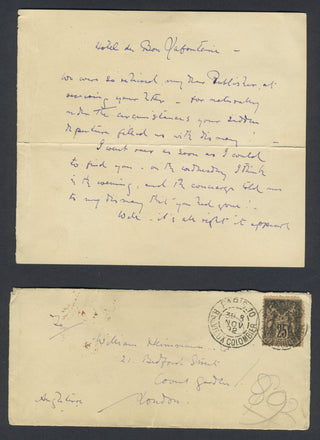 Hotel du Bon Lafontaine –
we were so relieved my dear Publisher, at
receiving your letter – for naturally
under the circumstances your sudden
departure filled us with dismay!
I went over as soon as I could
to find you – on the Wednesday I think
in the evening, and the concierge told me
to my dismay that you had gone!
Well – it's all right it appears
William Heinemann
21. Bedford Street
Covent Garden
London.
Angleterre
PARIS
NOV
92
R. DU VX COLOMBIER
25